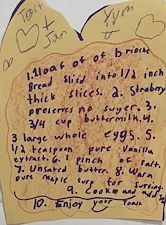 Toast
+
Jam
Yum
1. loaf of of brioche
Bread Sliced into 1/2 inch
thick slices. 2. Strabery
preserves no suger. 3.
3/4 cup buttermilk. 4.
3 large whole eggs. 5.
1/2 teaspoon pure Vanilla
extract. 6. 1 pinch of Salt.
7. Unsalted butter. 8. Warm
pure maple surp for surving.
9. Cook and add
10. Enjoy your Toast